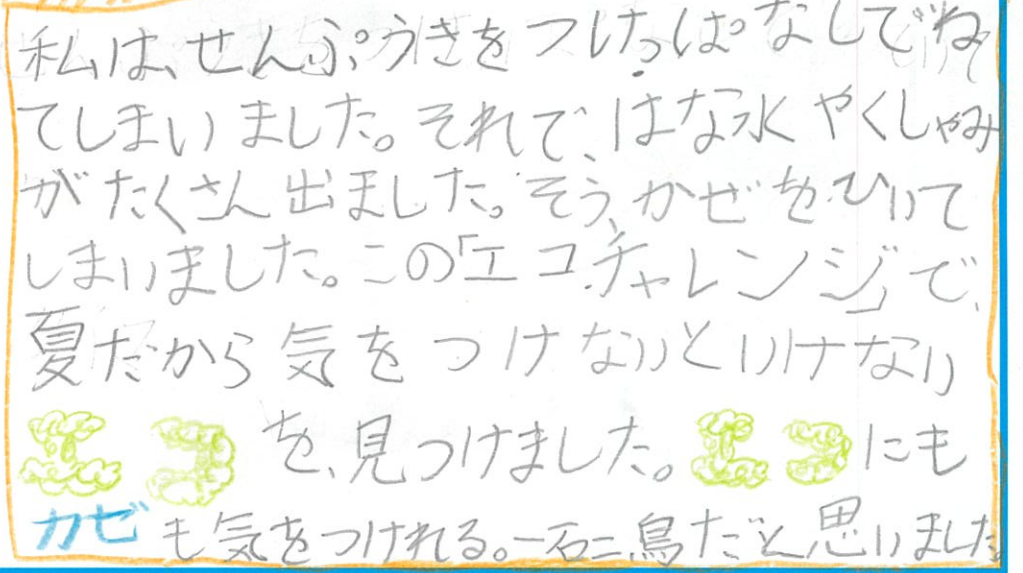 私は、せんぷうきをつけっぱなしでね
てしまいました。それで、はな水やくしゃみ
がたくさん出ました。そう、かぜをひいて
しまいました。この「エコチャレンジ」で、
夏だから気をつけないといけない
エコを、見つけました。エコにも
カゼも気をつけれる。一石二鳥だと思いました。